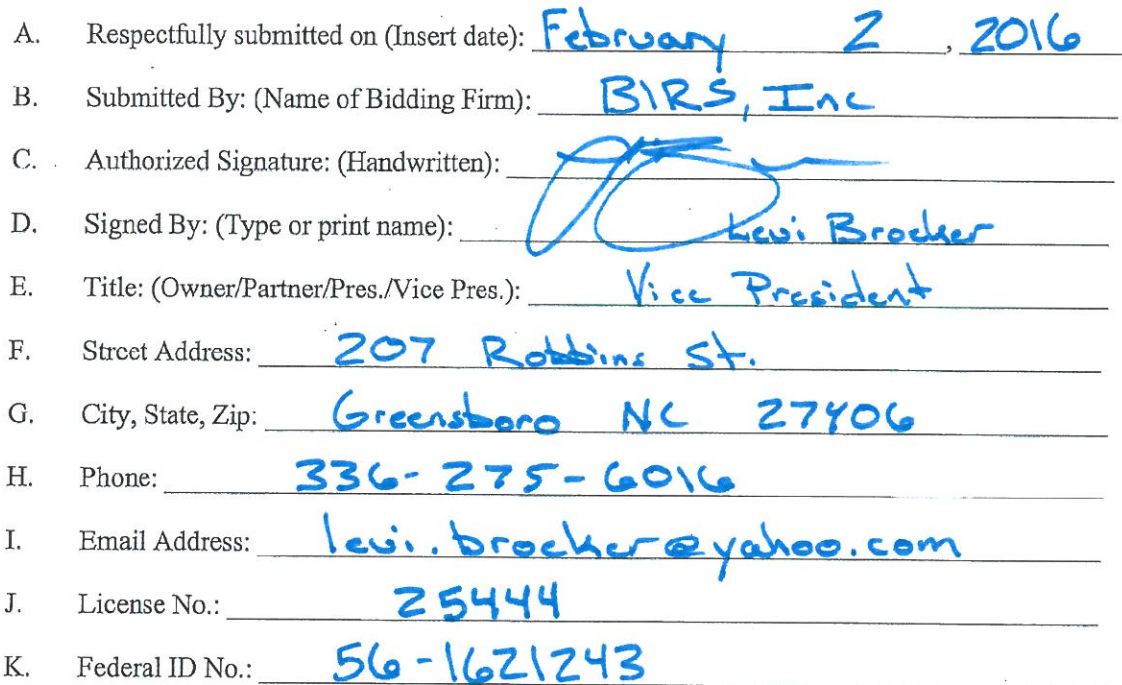 A. Respectfully submitted on (Insert date): February 2, 2016
B. Submitted By: (Name of Bidding Firm): BIRS, Inc
C. Authorized Signature: (Handwritten):
D. Signed By: (Type or print name): Levi Brocker
E. Title: (Owner/Partner/Pres./Vice Pres.): Vice President
F. Street Address: 207 Robbins St.
G. City, State, Zip: Greensboro NC 27406
H. Phone: 336-275-6016
I. Email Address: levi.brocker@yahoo.com
J. License No.: 25444
K. Federal ID No.: 56-1621243